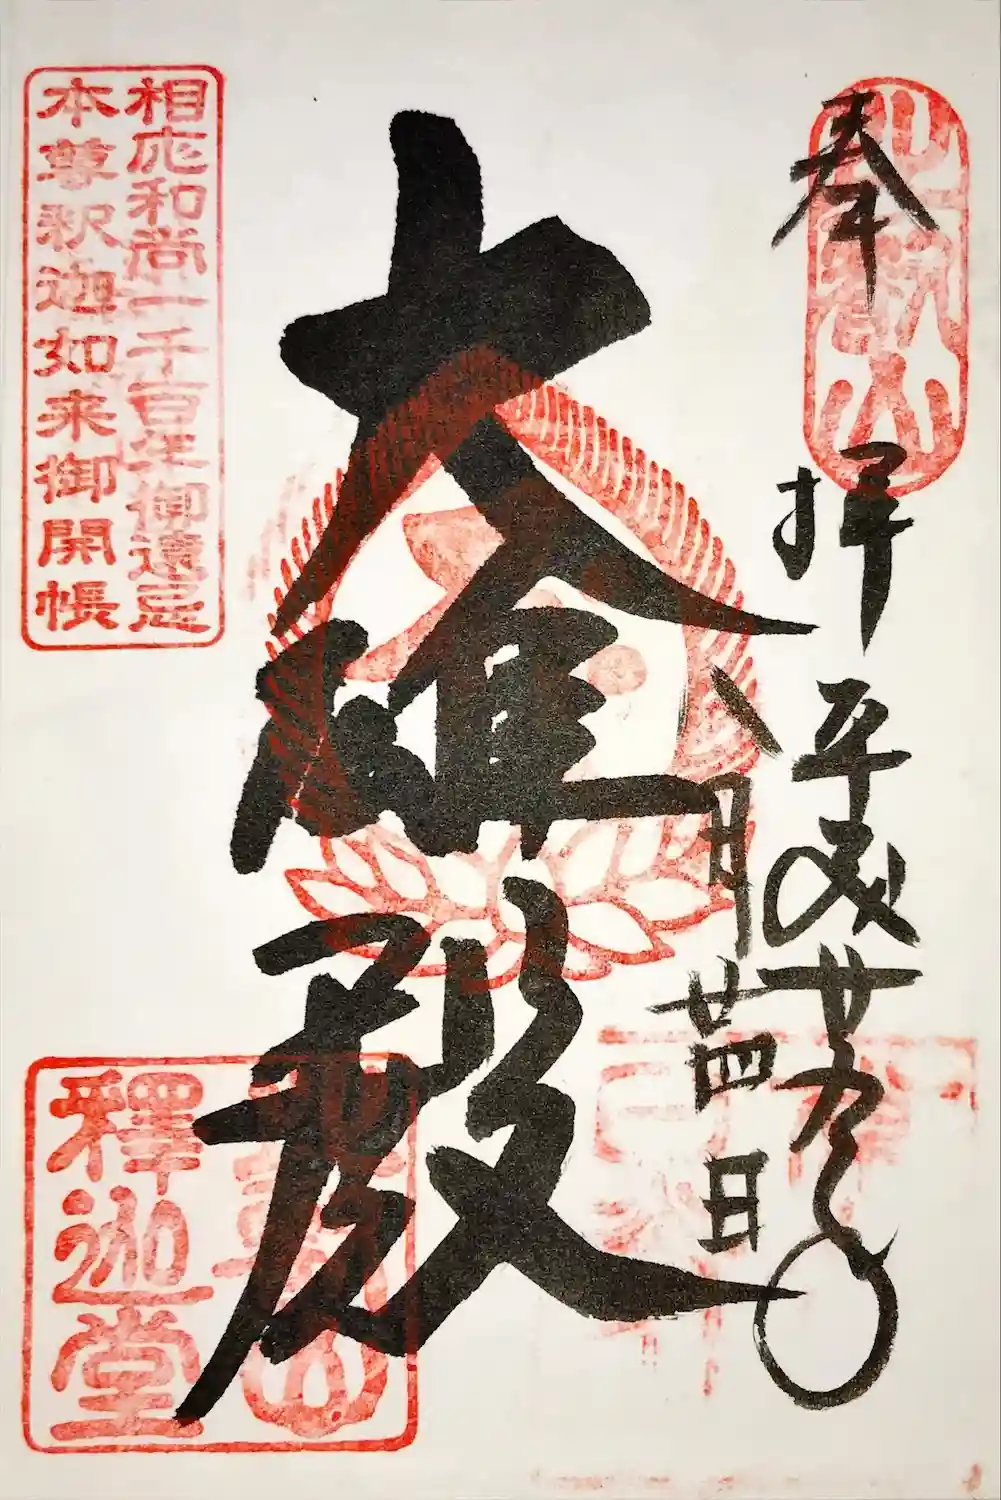 奉拝
平成廿九年
八月廿四日
大雄殿
相応和尚一千百年御遠忌
本尊釈迦如来御開帳
釋迦堂